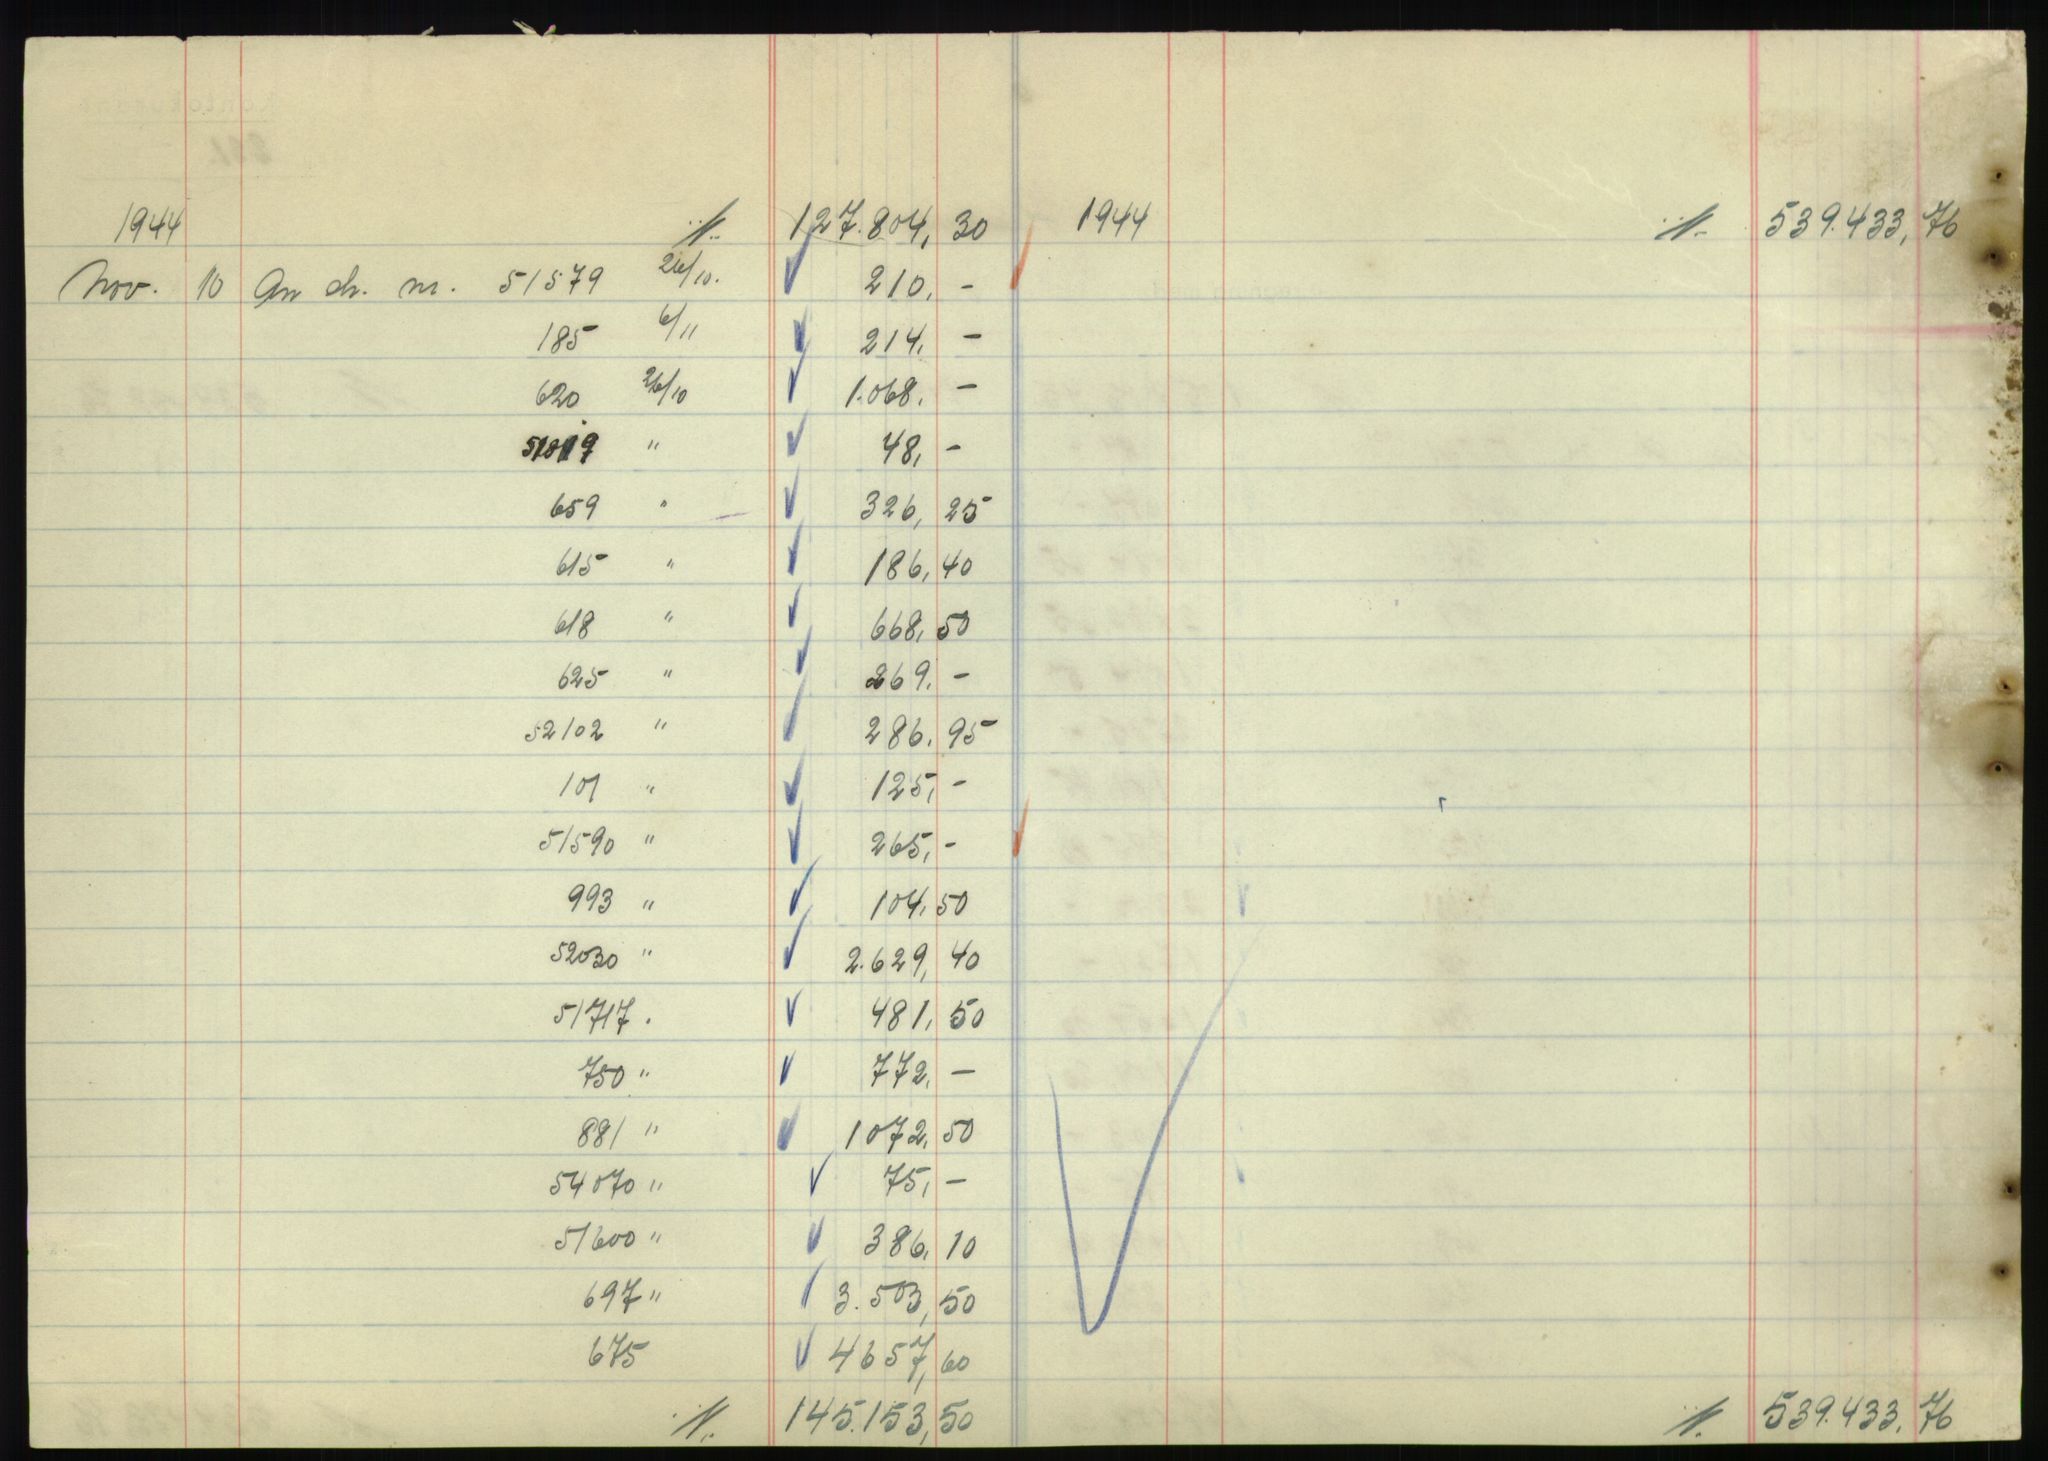 1944 ·/. 127.804,30 1944 ·/. 539.433,76
Nov. 10 An ch. nr. 51579 26/10. 210,-
185 6/11 214,-
620 26/10 1.068,-
51819 " 48,-
659 " 326,25
615 " 186,40
618 " 668,50
625 " 269,-
52102 " 286,95
101 " 125,-
51590 " 265,-
993 " 104,50
52030 " 2.629,40
51717 . 481,50
750 " 772,-
881 " 1072,50
54070 " 75,-
51600 " 386,10
697 " 3.503,50
675 4657,60
·/. 145.153,50 ·/. 539.433,76